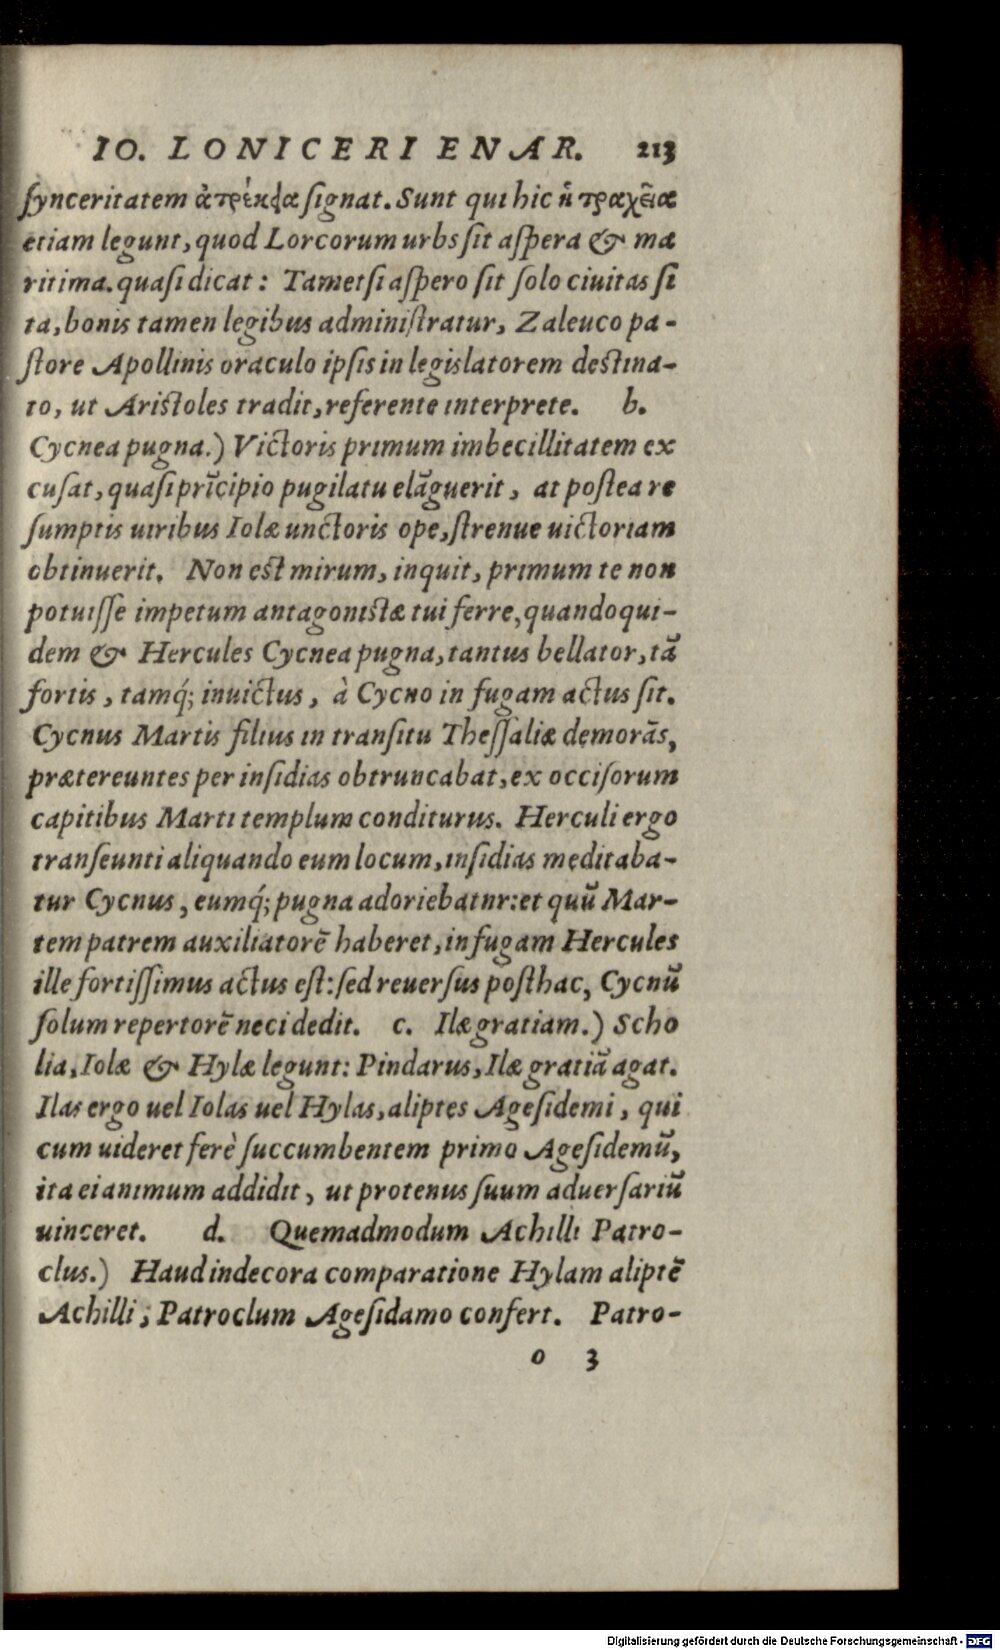 IO. LONICERI ENAR. 213
ſynceritatem ἀτρέκεια ſignat. Sunt qui hic ἢ τραχεῖα
etiam legunt, quod Lorcorum urbs ſit aſpera & ma
ritima. quaſi dicat: Tametſi aſpero ſit ſolo ciuitas ſi
ta, bonis tamen legibus adminiſtratur, Zaleuco pa-
ſtore Apollinis oraculo ipſis in legislatorem deſtina-
to, ut Ariſtoles tradit, referente interprete. b.
Cycnea pugna.) Victoris primum imbecillitatem ex
cuſat, quaſi prīcipio pugilatu elāguerit, at poſtea re
ſumptis uiribus Iolæ unctoris ope, ſtrenue uictoriam
obtinuerit. Non eſt mirum, inquit, primum te non
potuiſſe impetum antagoniſtæ tui ferre, quandoqui-
dem & Hercules Cycnea pugna, tantus bellator, tā
fortis, tamq́; inuictus, à Cycno in fugam actus ſit.
Cycnus Martis filius in tranſitu Theſſaliæ demorās,
prætereuntes per inſidias obtruncabat, ex occiſorum
capitibus Marti templum conditurus. Herculi ergo
tranſeunti aliquando eum locum, inſidias meditaba-
tur Cycnus, eumq́; pugna adoriebatnr: et quū Mar-
tem patrem auxiliatorē haberet, in fugam Hercules
ille fortiſſimus actus eſt: ſed reuerſus poſthac, Cycnū
ſolum repertorē neci dedit. c. Ilæ gratiam.) Scho
lia, Iolæ & Hylæ legunt: Pindarus, Ilæ gratiā agat.
Ilas ergo uel Iolas uel Hylas, aliptes Ageſidemi, qui
cum uideret ferè ſuccumbentem primo Ageſidemū,
ita ei animum addidit, ut protenus ſuum aduerſariū
uinceret. d. Quemadmodum Achilli Patro-
clus.) Haud indecora comparatione Hylam aliptē
Achilli; Patroclum Ageſidamo confert. Patro-
o 3
Digitalisierung gefördert durch die Deutsche Forschungsgemeinschaft - DFG